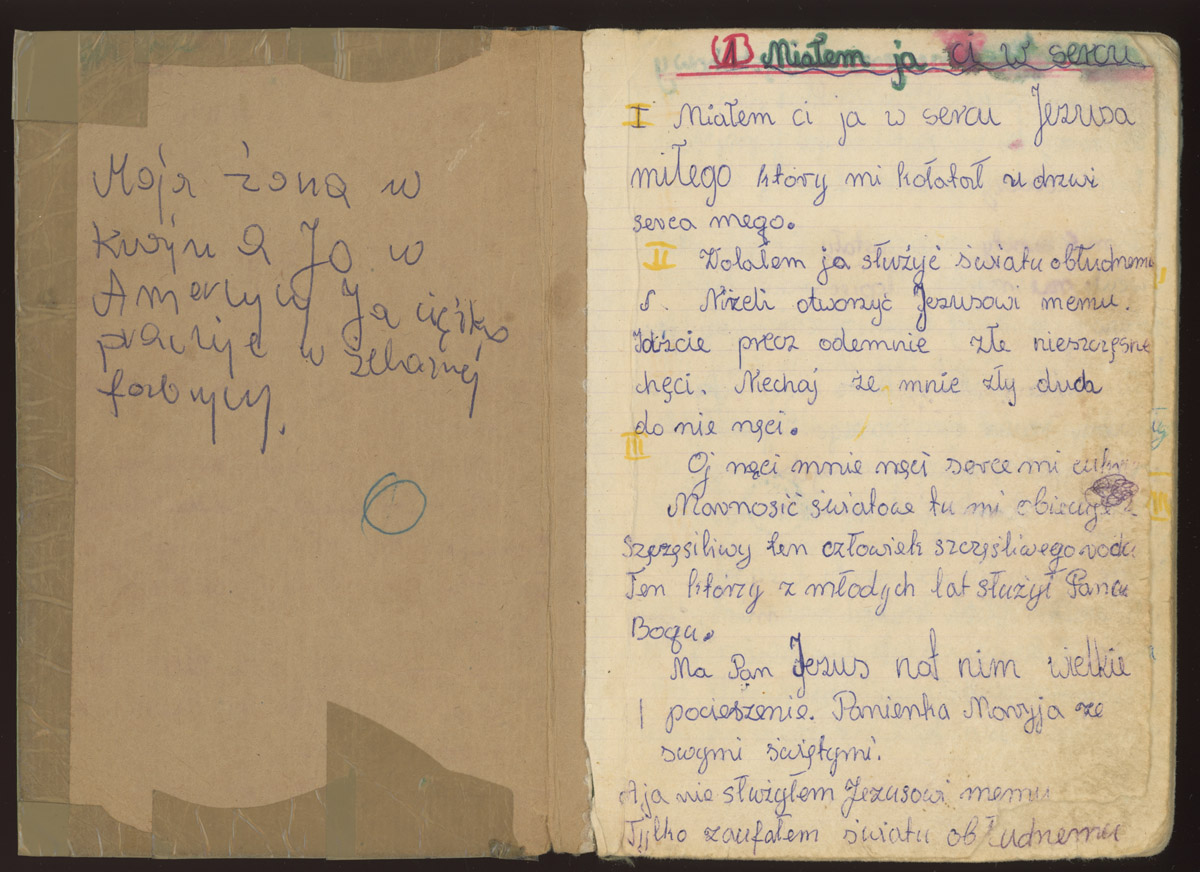 Moja żona w
kraju a Ja w
Ameryce Ja ciężko
pracuje w żelaznej
fabrycy.
(1) Miałem ja ci w sercu
I Miałem ci ja w sercu Jezusa
miłego który mi kołatał u drzwi
serca mego.
II Wolałem ja służyć światu obłudnemu
s. Niżeli otworzyć Jezusowi memu.
Idźcie precz odemnie złe nieszczęsne
chęci. Niechaj że mnie zły duch
do nie nęci.
III
Oj nęci mnie nęci serce mi
Marnosić światowe tu mi obiecuje
Szczęsiliwy ten człowiek szczęśliwego rodu
Ten który z młodych lat służył Panu
Bogu.
Ma Pan Jezus nat nim wielkie
pocieszenie. Panienka Maryja ze
swymi świętymi.
A ja nie służyłem Jezusowi memu
Tylko zaufałem światu obłudnemu